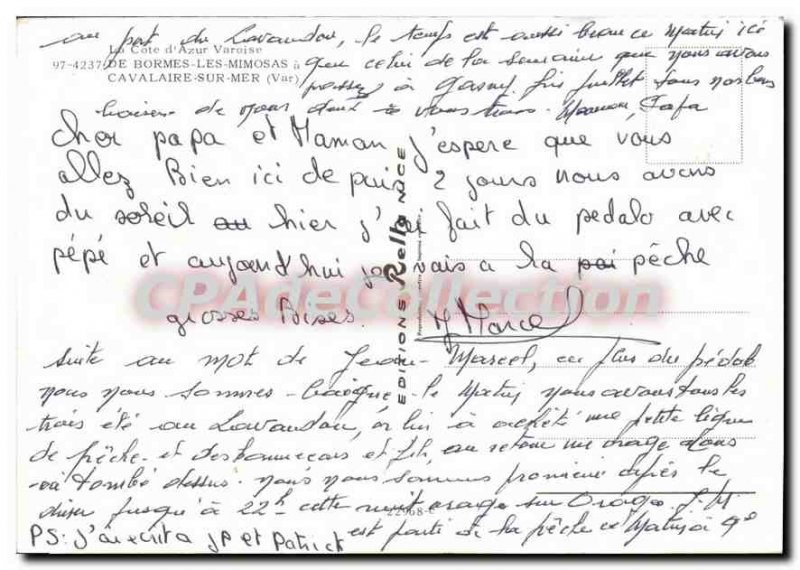 au port du Lavandou, le temps est aussi beau ce Matin ici
La Côte d'Azur Varoise
97-4237 DE BORMES-LES-MIMOSAS à
CAVALAIRE-SUR-MER (Var)
que celui de la semaine que nous avons
passez à fin juillet tous nos bons
baisers de nous deux à vous tous. Maman, Fafa
cher papa et Maman j'espere que vous
allez Bien ici de puis 2 jours nous avons
du soleil au hier j'ai fait du pedalo avec
pépé et aujourd'hui je vais a la poi pêche
grosses Bises. J Marcel
EDITIONS Rella NICE
CPAdeCollection
suite au mot de Jean-Marcel, en plus du pédalo
nous nous sommes baigné le Matin nous avons tous les
trois été au Lavandou, on lui a acheté une petite ligne
de pêche et des hameçons et fil, au retour un orage nous
a tombé dessus. nous nous sommes promené après le
diner jusqu'à 22h cette nuit orage sur Orage J.M
22968
est parti de la pêche ce Matin à 9h
PS: j'ai ecrit a JP et Patrick